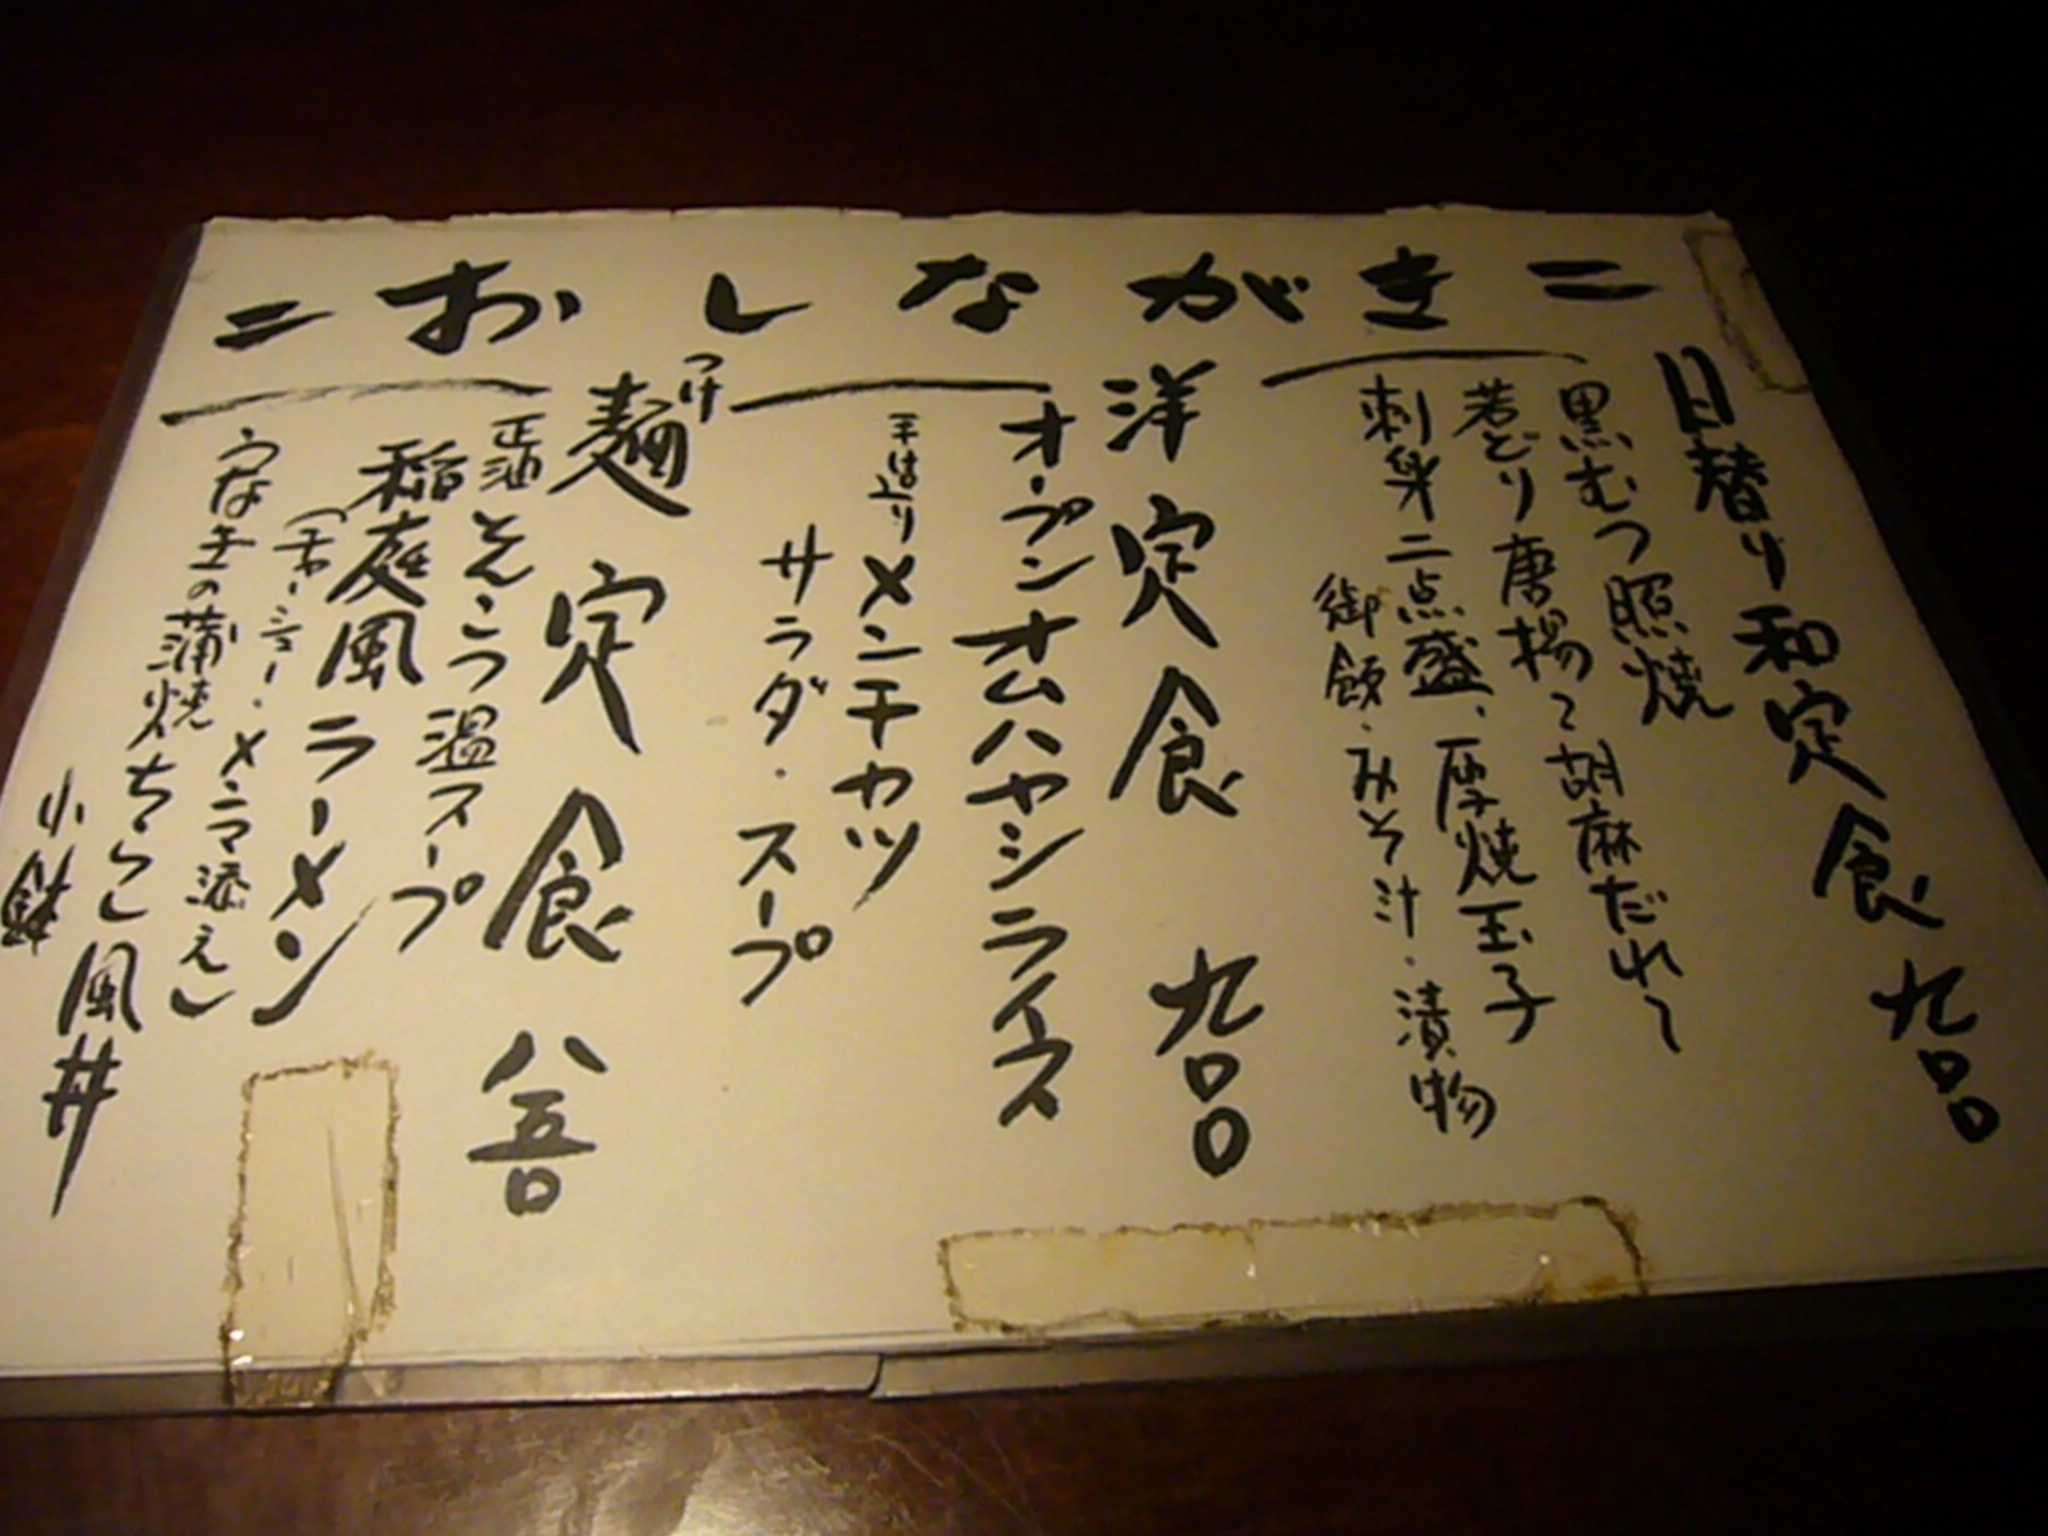 =おしながき=
日替り和定食 九〇〇
黒むつ照焼
若どり唐揚〜胡麻だれ〜
刺身二点盛、厚焼玉子
御飯・みそ汁・漬物
洋定食 九〇〇
オープンオムハヤシライス
又は
メンチカツ
サラダ・スープ
つけ麺定食 八五〇
正油とんこつ温スープ
稲庭風ラーメン
(チャーシュー・メンマ添え)
うな玉の蒲焼ちらし風丼
小鉢